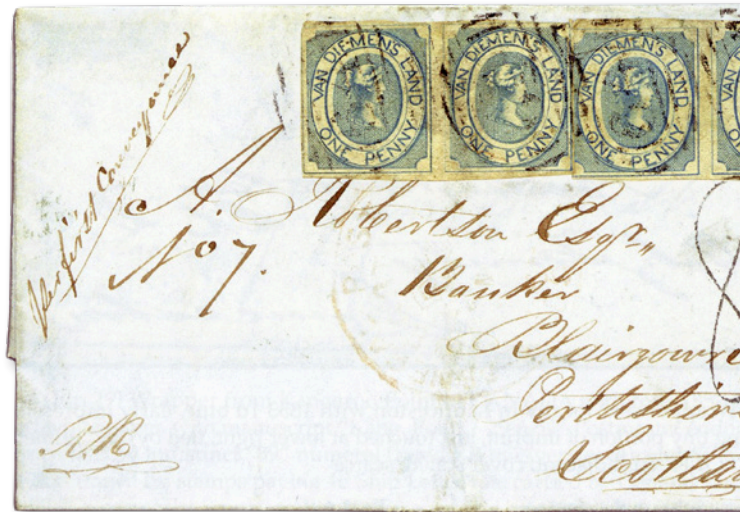 VAN DIEMEN'S LAND ONE PENNY
VAN DIEMEN'S LAND ONE PENNY
VAN DIEMEN'S LAND ONE PENNY
Per first Conveyance
A. Robertson Esqr.,
No 7.
Banker
Blairgowrie
Perthshire
Scotla
R.R.